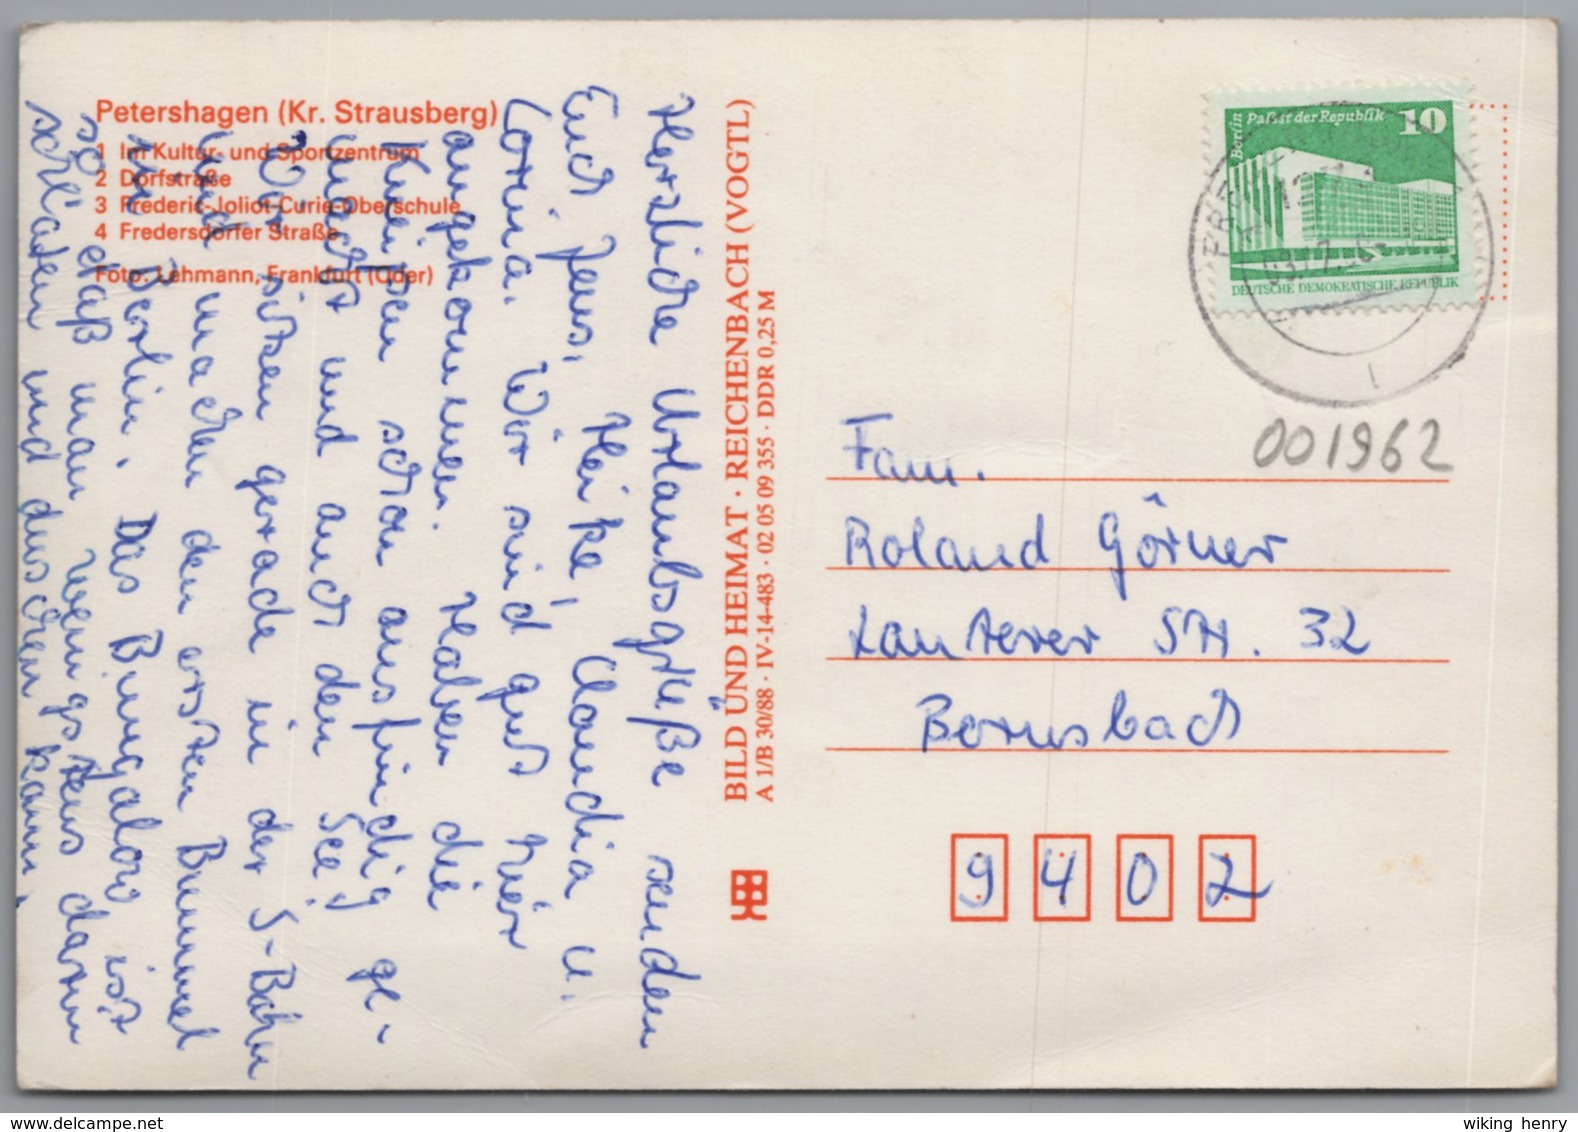 Petershagen (Kr. Strausberg)
1 Im Kultur- und Sportzentrum
2 Dorfstraße
3 Frederic-Joliot-Curie-Oberschule
4 Fredersdorfer Straße
Foto: Lehmann, Frankfurt (Oder)
Herzliche Urlaubsgrüße senden
Euch Jens, Heike, Claudia u.
Corina. Wir sind gut hier
angekommen. Haben die
Kneipen schon ausfindig ge-
macht und auch den See!
Wir sitzen gerade in der S-Bahn
und machen den ersten Bummel
in Berlin. Das Bungalow ist
so daß man wenigstens darin
schlafen und duschen kann.
BILD UND HEIMAT · REICHENBACH (VOGTL)
A 1/B 30/88 · IV-14-483 · 02 05 09 355 · DDR 0,25 M
Berlin Palast der Republik 10
DEUTSCHE DEMOKRATISCHE REPUBLIK
001962
Fam.
Roland Görner
Lauterer Str. 32
Bernsbach
9402
www.delcampe.net
wiking henry